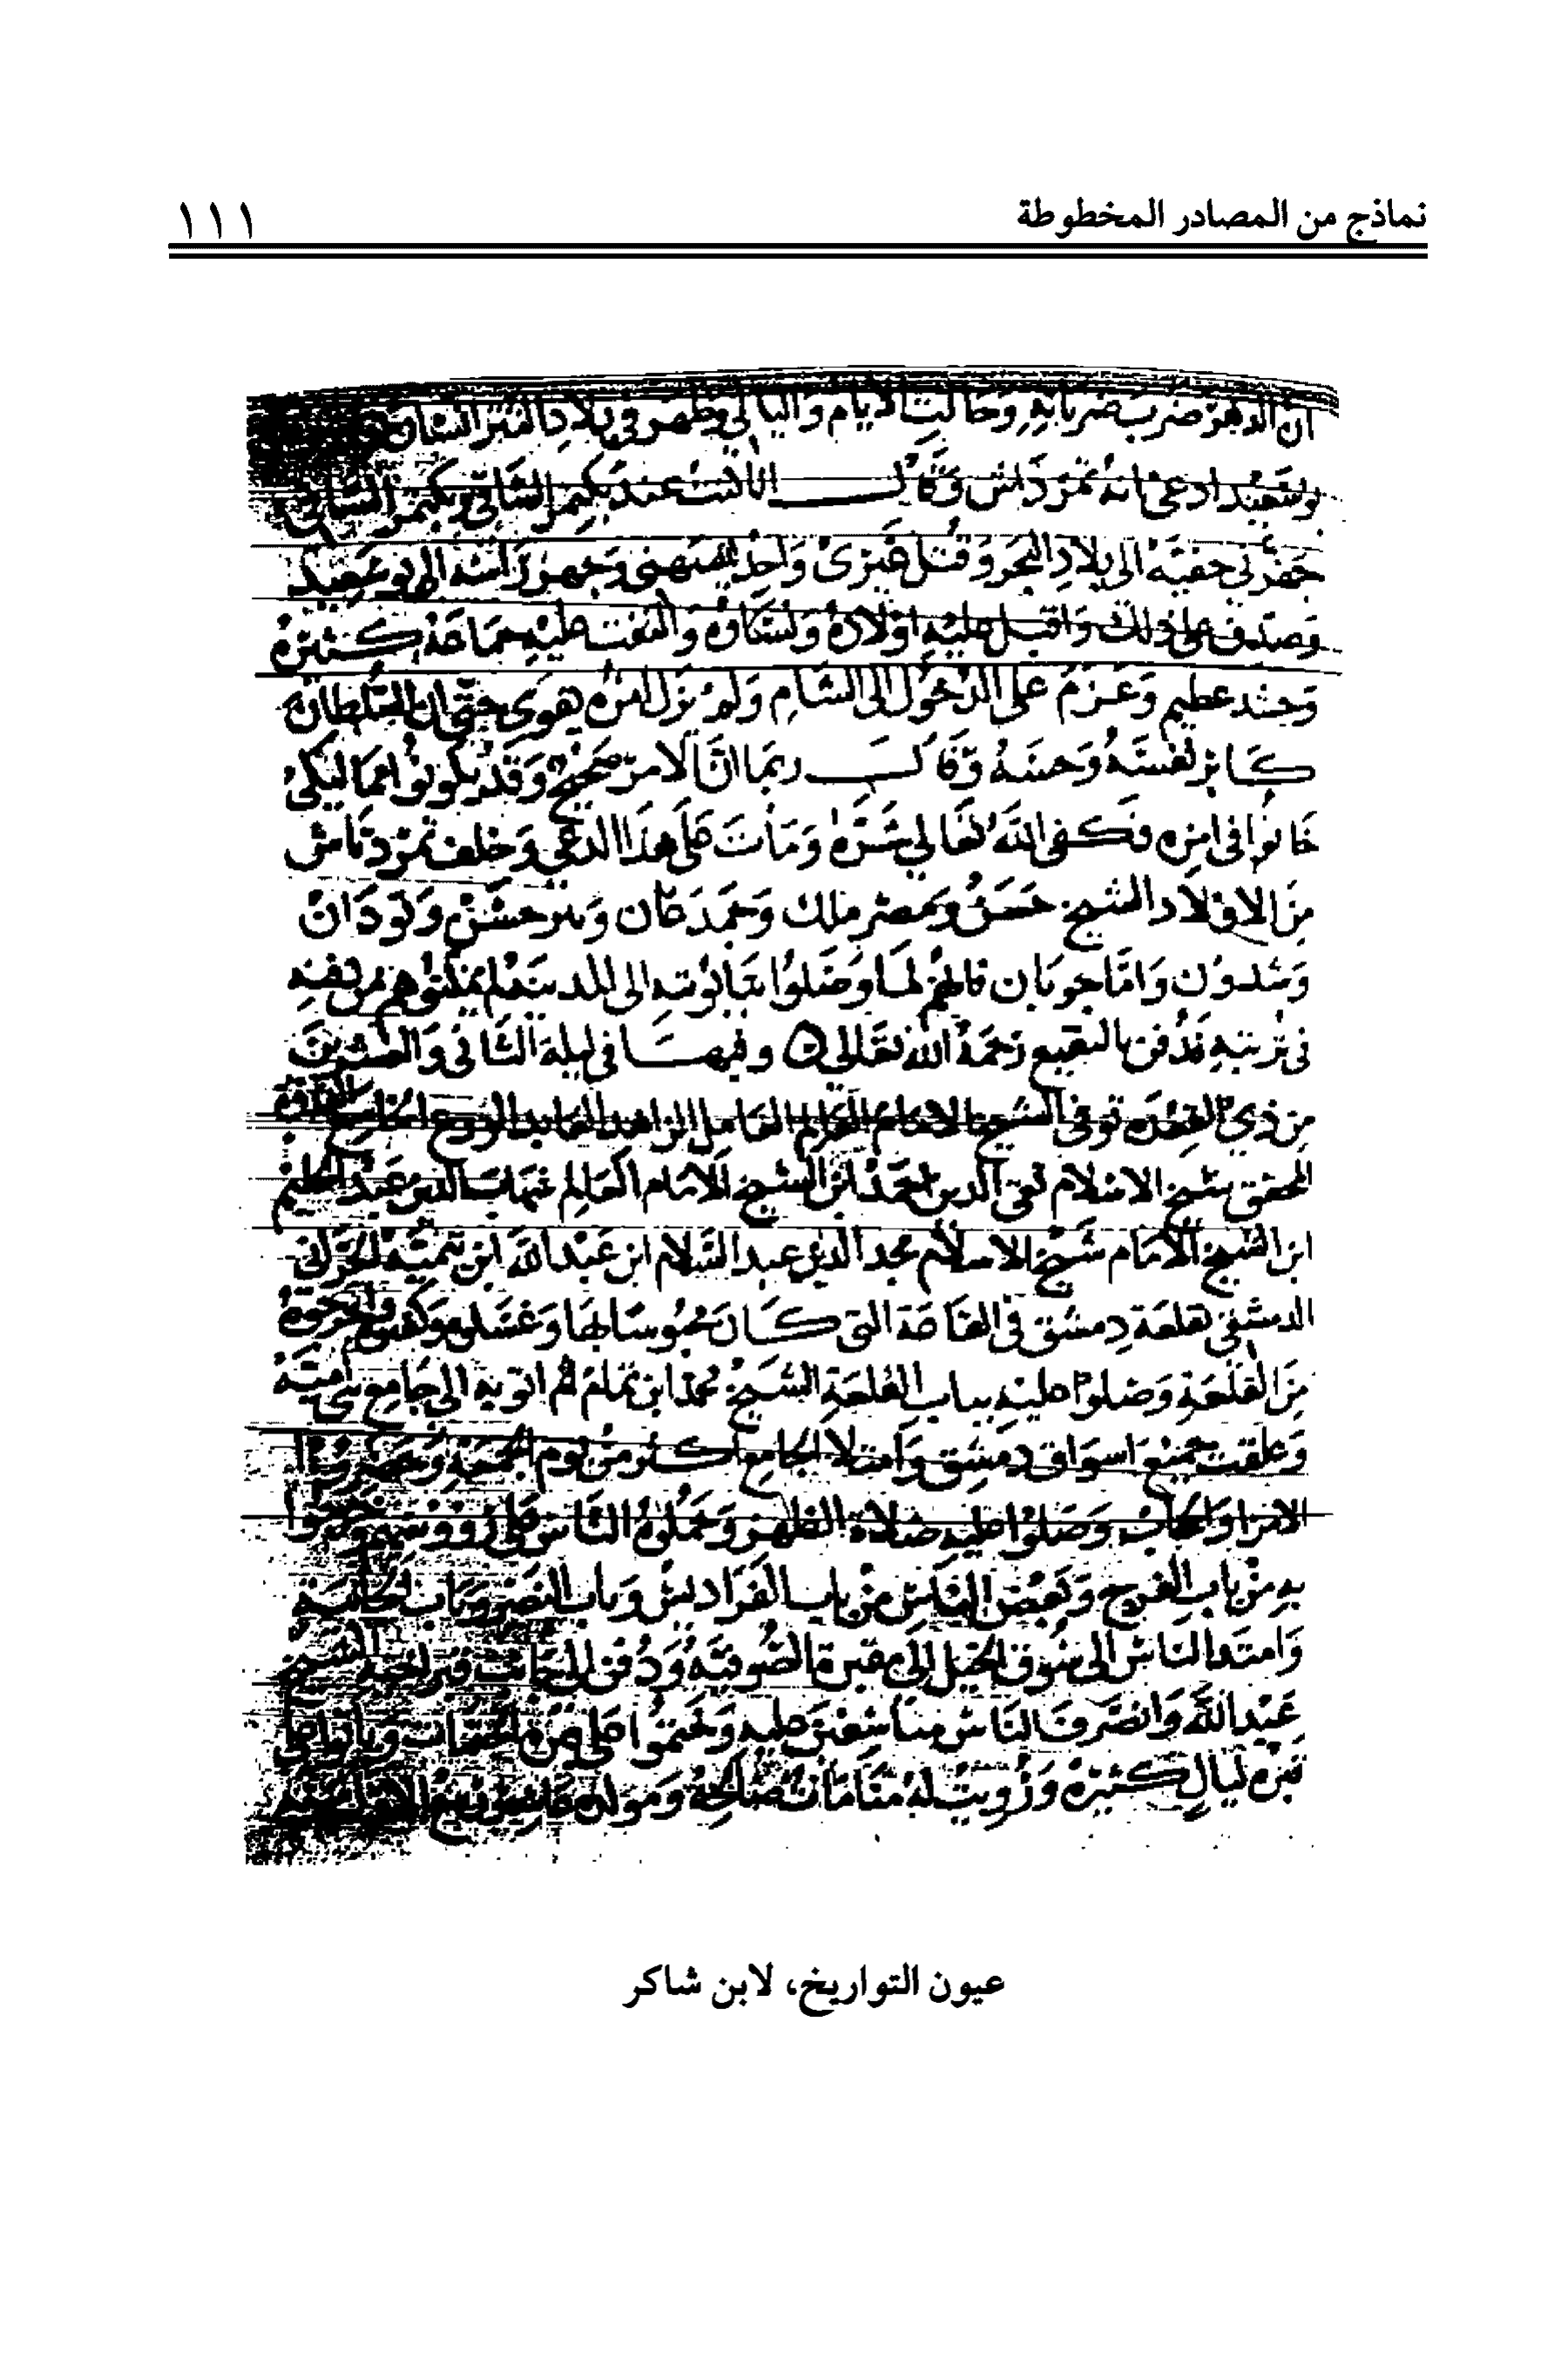 نماذج من المصادر المخطوطة
١١١
ان الدهر ضرب ضرباته وحالت الايام والليالي وظهر في بلاد التتر انسان
بوسعيد ادعى انه تمرداش وقال انا كنت عند بكتمر الساقي وبكتمر الساقي
في خفية الى بلاد البحر وقتل غيري واحد وجهز راسه الى بوسعيد
وصدق على ذلك واقبل عليه اولاده ونساؤه والتفت عليه جماعة كثيرة
وحشد عظيم وعزم على الدخول الى الشام ولم يزل امره يقوى حتى ان السلطان
كابر نفسه وحسه وقال ربما ان الامر صحيح وقد يكونوا مماليكي
خانوا في امره فكفى الله تعالى شره ومات هذا المدعي وخلف تمرداش
من الاولاد الشيخ حسن وبمصر ملك وحمدكان وبير حسن وتودان
وشدون واما جوبان فانهم لما وصلوا بتابوته الى المدينة لم يمكنوهم من دفنه
في تربته فدفن بالبقيع رحمه الله تعالى ٥ وفيها في ليلة الثاني والعشرين
من ذي القعدة توفي الشيخ الامام العالم العامل الزاهد العابد الورع
المحقق شيخ الاسلام تقي الدين احمد ابن الشيخ الامام العالم شهاب الدين عبد الحليم
ابن الشيخ الامام شيخ الاسلام مجد الدين عبد السلام ابن عبد الله ابن تيمية الحراني
الدمشقي بقلعة دمشق في القاعة التي كان محبوسا بها وغسلوه وكفنوه واخرجوه
من القلعة وصلوا عليه بباب القلعة الشيخ محمد ابن تمام ثم اتو به الى جامع بني امية
وغلقت جميع اسواق دمشق وامتلا الجامع اكثر من يوم الجمعة وحضروا
الامرا والحجاب وصلوا عليه صلاة الظهر وحملوه الناس على رووسهم وخرجوا
به من باب الفرج وبعض الناس من باب الفراديس وباب النصر وباب الجابية
وامتد الناس الى سوق الخيل الى مقبرة الصوفية ودفن الى جانب قبر اخيه الشيخ
عبد الله وانصرف الناس متاسفين عليه وختموا على قبره الختمات وباتوا على
قبره ليال كثيرة ورويت له منامات صالحة ومولده
عيون التواريخ، لابن شاكر